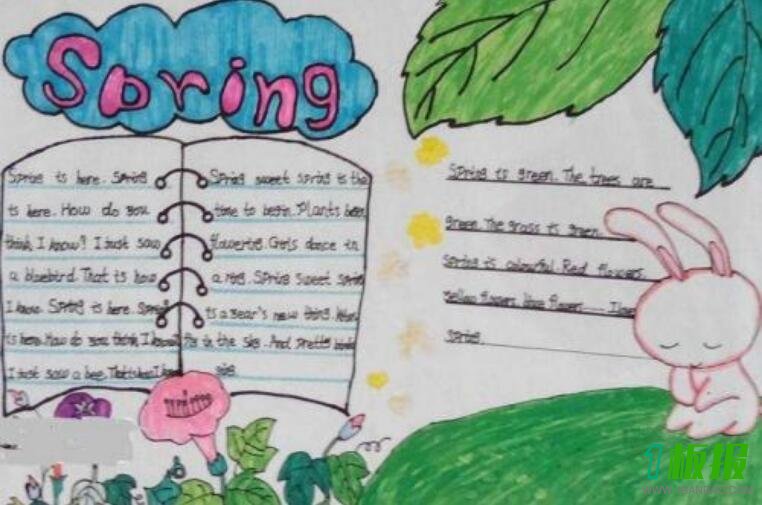 Spring
Spring is here. Spring
is here. How do you
think I know? I just saw
a bluebird. That is how
I know. Spring is here. Spring
is here. How do you think I know
I just saw a bee. That is how I know
Spring sweet spring is the
time to begin. Plants
flowering. Girls dance in
a ring. Spring sweet spring
is a year's new thing.
in the sky. And pretty birds
sing
Spring is green. The trees are
green. The grass is green.
Spring is colourful. Red flowers.
Yellow flowers, blue flowers...... I love
spring.
板报